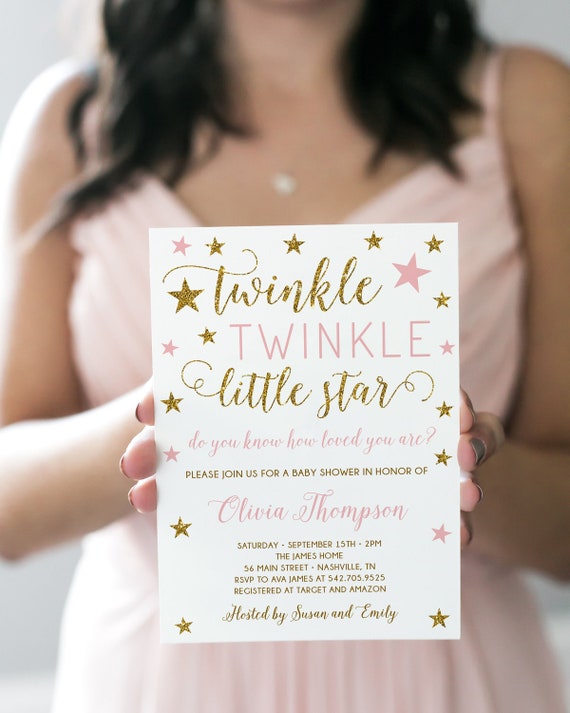 twinkle
TWINKLE
little star
do you know how loved you are?
PLEASE JOIN US FOR A BABY SHOWER IN HONOR OF
Olivia Thompson
SATURDAY • SEPTEMBER 15TH • 2PM
THE JAMES HOME
56 MAIN STREET • NASHVILLE, TN
RSVP TO AVA JAMES AT 542.705.9525
REGISTERED AT TARGET AND AMAZON
Hosted by Susan and Emily